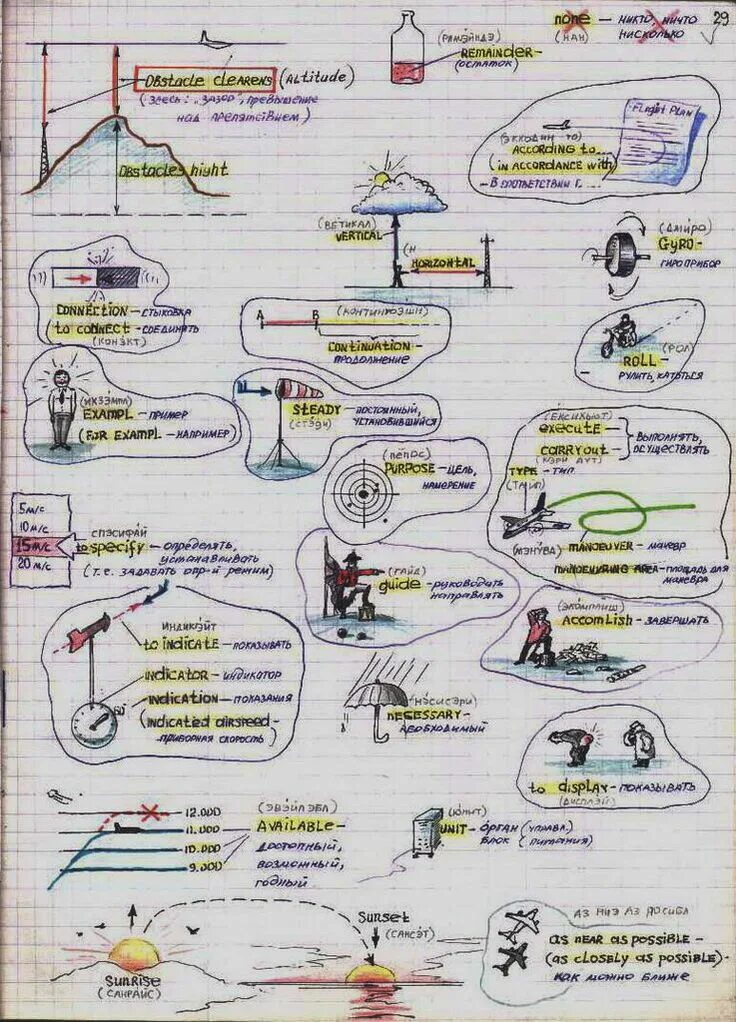 29
none — никто, ничто
(нан) нисколько
(римэйндэ)
REMAINDER —
(остаток)
Obstacle clearens (Altitude)
(здесь: "зазор", превышение
над препятствием)
Obstacles hight
Flight Plan
(экходин то)
ACCORDING to...
(in accordance with)
— В соответствии с....
(ветикал)
VERTICAL
(н
HORIZONTAL
(джиро)
GYRO —
гироприбор
CONNECTION — стыковка
to connect — соединять
(конэкт)
A B (континюэйшн)
CONTINUATION —
продолжение
(рол)
ROLL —
рулить, катиться
(ихзэмпл)
EXAMPL — пример
(FOR EXAMPL — например)
STEADY — постоянный,
(стэди) установившийся
(ексикьют)
execute —
carry out —
(кэри аут)
выполнять,
осуществлять
TYPE — тип
(тайп)
(мэнува) MANOEUVER — маневр
manoeuvring area — площадь для
маневра
(пёпос)
PURPOSE — цель,
намерение
5 м/с
10 м/с
15 м/с
20 м/с
спэсифай
to specify — определять,
устанавливать
(т.е. задавать опр-й режим)
(гайд)
guide — руководить
направлять
(экомплиш)
Accomlish — завершать
индикэйт
to indicate — показывать
indicator — индикатор
indication — показания
(indicated airspeed —
приборная скорость)
(нэсисэри)
necessary —
необходимый
to display — показывать
(дисплэй)
12.000
11.000
10.000
9.000
(эвэйлэбл)
AVAILABLE —
доступный,
возможный,
годный
(юнит)
UNIT — орган (управл.)
блок (питания)
Sunrise
(санрайс)
Sunset
(сансэт)
аз ниэ аз посибл
as near as possible —
(as closely as possible) —
как можно ближе